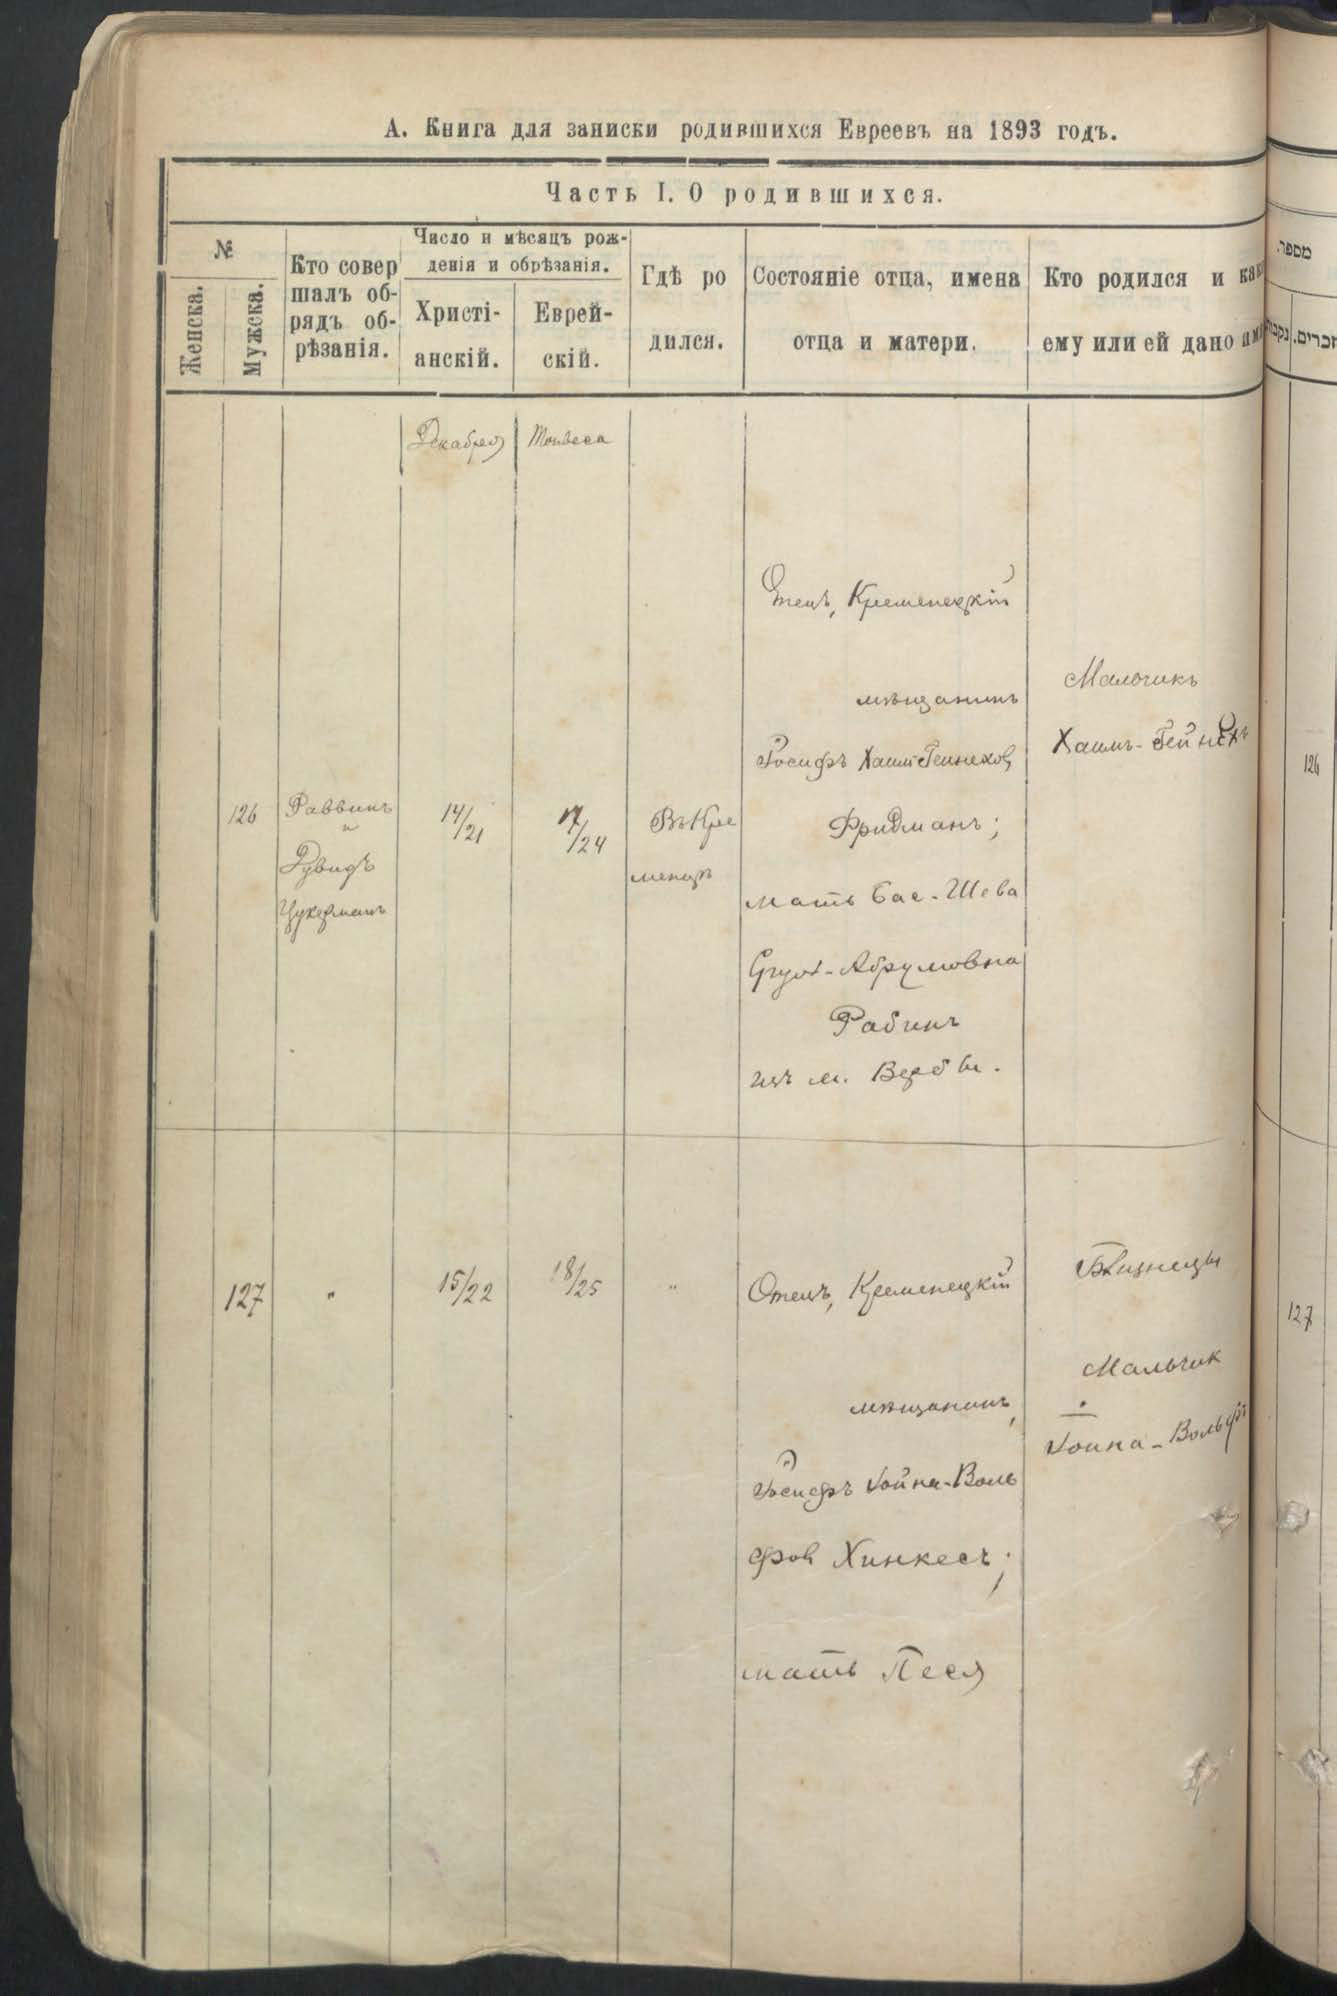 А. Книга для записки родившихся Евреевъ на 1893 годъ.
Часть I. О родившихся.
№
Женска.
Мужска.
Кто совер
шалъ об-
рядъ об-
рѣзанія.
Число и мѣсяцъ рож-
денія и обрѣзанія.
Христі-
анскій.
Еврей-
скій.
Гдѣ ро
дился.
Состояніе отца, имена
отца и матери.
Кто родился и како
ему или ей дано имя
Декабря
Тейвеса
126
Раввинъ
и
Дувидъ
Цукерманъ
14/21
17/24
Въ Кре
менцѣ
Отецъ, Кременецкій
мѣщанинъ
Іосифъ Хаимъ-Гейнехов
Фридманъ;
мать Бас-Шева
Абрумовна
Рабинъ
изъ м. Вербы.
Мальчикъ
Хаимъ-Гейнехъ
127
"
15/22
18/25
"
Отецъ, Кременецкій
мѣщанинъ,
Іосифъ Іойна-Воль
фов Хинкесъ;
мать Песя
Близнецы
Мальчик
Іойна-Вольфъ
מספר.
זכרים.
נקבות
126
127